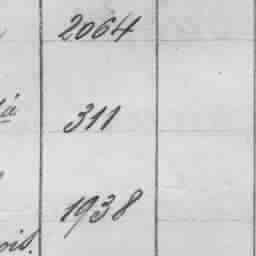 2064
là
311
1938
ois.